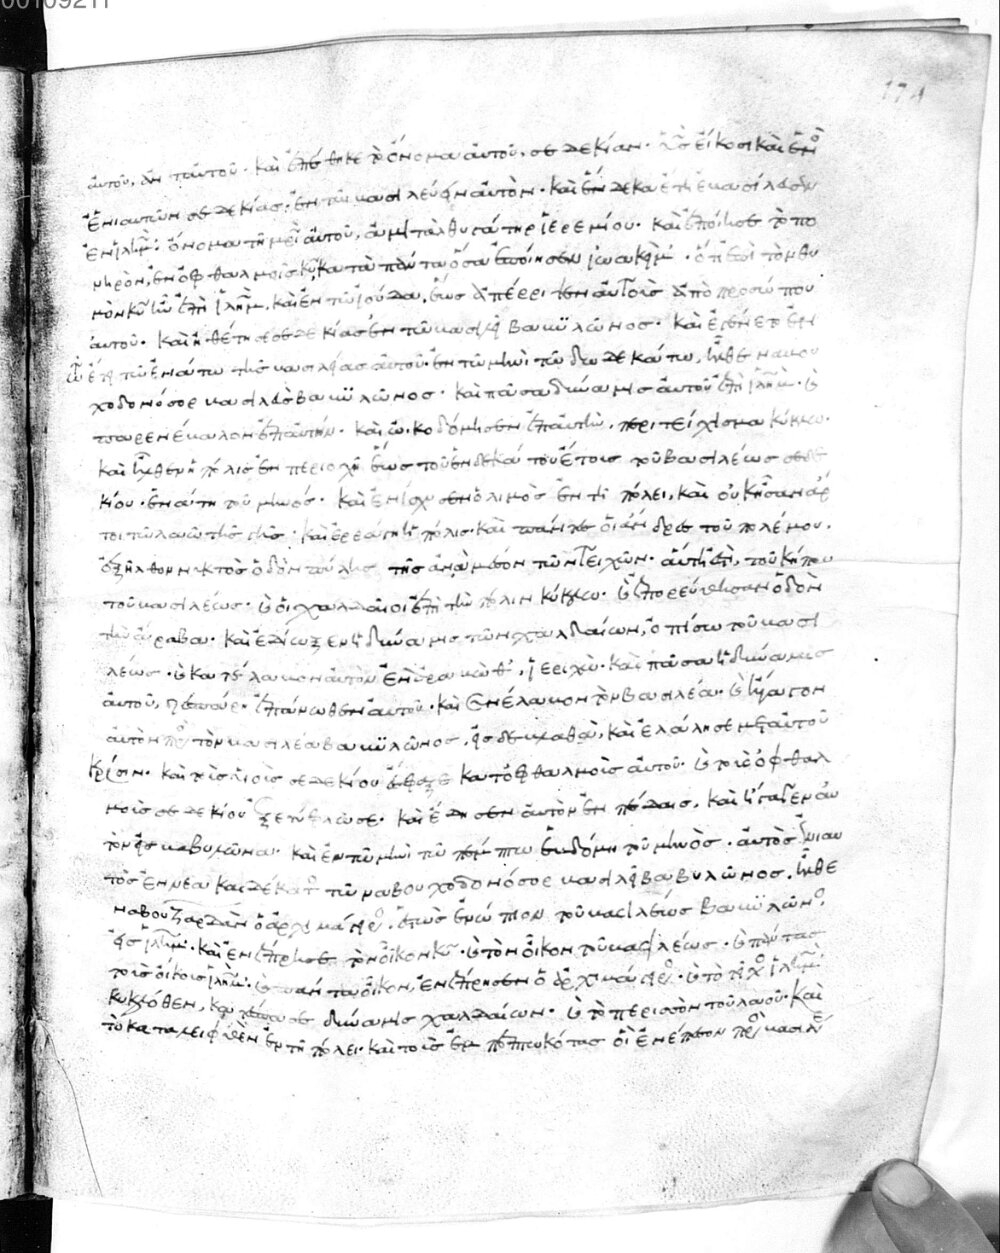 00109211
174
αὐτοῦ, ἀντ' αὐτοῦ· καὶ ἐπέθηκε τὸ ὄνομα αὐτοῦ, σεδεκίαν· υἱὸς εἴκοσι καὶ ἑνὸ
ἐνιαυτῶν σεδεκίας, ἐν τῶ βασιλεύειν αὐτὸν· καὶ ἕνδεκα ἔτη ἐβασίλευσεν
ἐν ἱλημ· ὄνομα τῆ μρὶ αὐτοῦ, ἀμιτὰλ θυγάτηρ ἱερεμίου· καὶ ἐποίησε τὸ πο
νηρὸν, ἐν ὀφθαλμοῖς κυ κατὰ πάντα ὅσα ἐποίησεν ἰωακὴμ· ὅτι ἐπὶ τὸν θυ
μὸν κυ ἦν ἐπὶ ἱλημ, καὶ ἐν τῶ ἰούδα, ἕως ἀπέρριψεν αὐτοὺς ἀπὸ προσώπου
αὐτοῦ· καὶ ἠθέτησε σεδεκίας ἐν τῶ βασιλεῖ βαβυλῶνος· καὶ ἐγένετο ἐν
τῶ ἔτει τῶ ἐνάτω τῆς βασιλείας αὐτοῦ· ἐν τῶ μηνὶ τῶ δωδεκάτω, ἦλθε ναβου
χοδονόσορ βασιλεὺς βαβυλῶνος· καὶ πᾶσα δύναμις αὐτοῦ ἐπὶ ἱλημ· καὶ
παρενέβαλον ἐπ' αὐτήν· καὶ ὠκοδόμησεν ἐπ' αὐτὴν, περιτείχισμα κύκλω·
καὶ ἦλθεν ἡ πόλις ἐν περιοχῆ ἕως τοῦ ἑνδεκάτου ἔτους τοῦ βασιλέως σεδε
κίου· ἐνάτη τοῦ μηνός· καὶ ἐνίσχυσεν ὁ λιμὸς ἐν τῆ πόλει, καὶ οὐκ ἦσαν ἄρ
τοι τῶ λαῶ τῆς γῆς· καὶ ἐρράγη ἡ πόλις· καὶ πάντες οἱ ἄνδρες τοῦ πολέμου·
ἐξῆλθον νυκτὸς ὁδὸν πύλης τῆς ἀναμέσον τῶν τειχῶν· αὕτη ἐστὶ, τοῦ κήπου
τοῦ βασιλέως· καὶ οἱ χαλδαῖοι ἐπὶ τὴν πόλιν κύκλω· καὶ ἐπορεύθησαν ὁδὸν
τὴν ἄραβα· καὶ ἐδίωξεν ἡ δύναμις τῶν χαλδαίων, ὀπίσω τοῦ βασι
λέως· καὶ κατέλαβον αὐτὸν ἐν ἀραβὼθ, ἱεριχὼ· καὶ πᾶσα ἡ δύναμις
αὐτοῦ, διεσπάρη ἐπάνωθεν αὐτοῦ· καὶ συνέλαβον τὸν βασιλέα· καὶ ἤγαγον
αὐτὸν πρὸς τὸν βασιλέα βαβυλῶνος, εἰς δεβλαθὰ, καὶ ἐλάλησε μετ' αὐτοῦ
κρίσιν· καὶ τοὺς υἱοὺς σεδεκίου ἔσφαξε κατ' ὀφθαλμοὺς αὐτοῦ· καὶ τοὺς ὀφθαλ
μοὺς σεδεκίου ἐξετύφλωσε· καὶ ἔδησεν αὐτὸν ἐν πέδαις, καὶ ἤγαγεν αὐ
τὸν εἰς βαβυλῶνα· καὶ ἐν τῶ μηνὶ τῶ πέμπτω ἑβδόμη τοῦ μηνὸς· αὐτὸς ἐνιαυ
τὸς ἐννεακαιδέκατος τῶ ναβουχοδονόσορ βασιλεῖ βαβυλῶνος· ἦλθε
ναβουζαρδὰν ὁ ἀρχιμάγειρος· ἑστὼς ἐνώπιον τοῦ βασιλέως βαβυλῶνος
εἰς ἱλημ· καὶ ἐνέπρησε τὸν οἶκον κυ· καὶ τὸν οἶκον τοῦ βασιλέως· καὶ πάντας
τοὺς οἴκους ἱλημ· καὶ πάντα οἶκον, ἐνέπρησεν ὁ ἀρχιμάγειρος· καὶ τὸ τεῖχος ἱλημ·
κυκλόθεν, κατέσπασε δύναμις χαλδαίων· καὶ τὸ περισσὸν τοῦ λαοῦ· καὶ
τὸ καταλειφθὲν ἐν τῆ πόλει· καὶ τοὺς ἐμπεπτωκότας οἳ ἐνέπεσον πρὸς βασιλέα